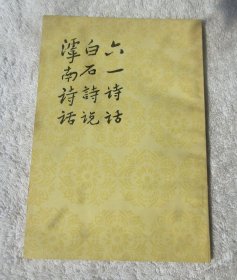 六一诗话
白石詩说
滹南诗话